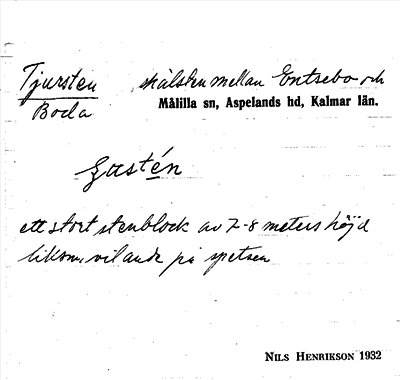 Tjursten skälsten mellan Entsebo och
Boda Målilla sn, Aspelands hd, Kalmar län.
ett stort stenblock av 7-8 meters höjd
liksom vilande på spetsen
NILS HENRIKSON 1932